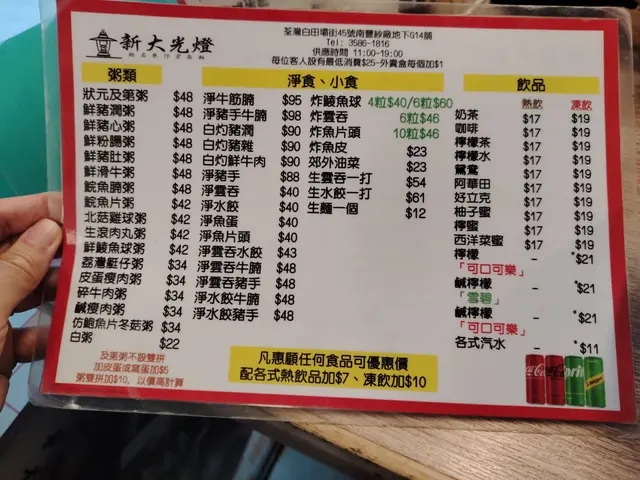 新大光燈
荃灣白田壩街45號南豐紗廠地下G14舖
Tel: 3586-1816
供應時間 11:00-19:00
每位客人設有最低消費$25-外賣盒每個加$1
粥類
狀元及第粥 $48
鮮豬潤粥 $48
鮮豬心粥 $48
鮮粉腸粥 $48
鮮豬肚粥 $48
鮮滑牛粥 $48
鯇魚腩粥 $48
鯇魚片粥 $42
北菇雞球粥 $42
生滾肉丸粥 $42
鮮鯪魚球粥 $42
荔灣艇仔粥 $34
皮蛋瘦肉粥 $34
碎牛肉粥 $34
鹹瘦肉粥 $34
仿鮑魚片冬菇粥 $34
白粥 $22
及第粥不設雙拼
加皮蛋或窩蛋加$5
粥雙拼加$10, 以價高計算
淨食、小食
淨牛筋腩 $95
淨豬手牛腩 $98
白灼豬潤 $90
白灼豬雜 $90
白灼鮮牛肉 $90
淨豬手 $88
淨雲吞 $40
淨水餃 $40
淨魚蛋 $40
淨魚片頭 $40
淨雲吞水餃 $43
淨雲吞牛腩 $48
淨雲吞豬手 $48
淨水餃牛腩 $48
淨水餃豬手 $48
炸鯪魚球 4粒$40/6粒$60
炸雲吞 6粒$46
炸魚片頭 10粒$46
炸魚皮 $23
郊外油菜 $23
生雲吞一打 $54
生水餃一打 $61
生麵一個 $12
凡惠顧任何食品可優惠價
配各式熱飲品加$7、凍飲加$10
飲品
熱飲 凍飲
奶茶 $17 $19
咖啡 $17 $19
檸檬茶 $17 $19
檸檬水 $17 $19
鴛鴦 $17 $19
阿華田 $17 $19
好立克 $17 $19
柚子蜜 $17 $19
檸蜜 $17 $19
西洋菜蜜 $17 $19
檸檬 - *$21
「可口可樂」
鹹檸檬 - *$21
「雪碧」
鹹檸檬 - *$21
「可口可樂」
各式汽水 - *$11